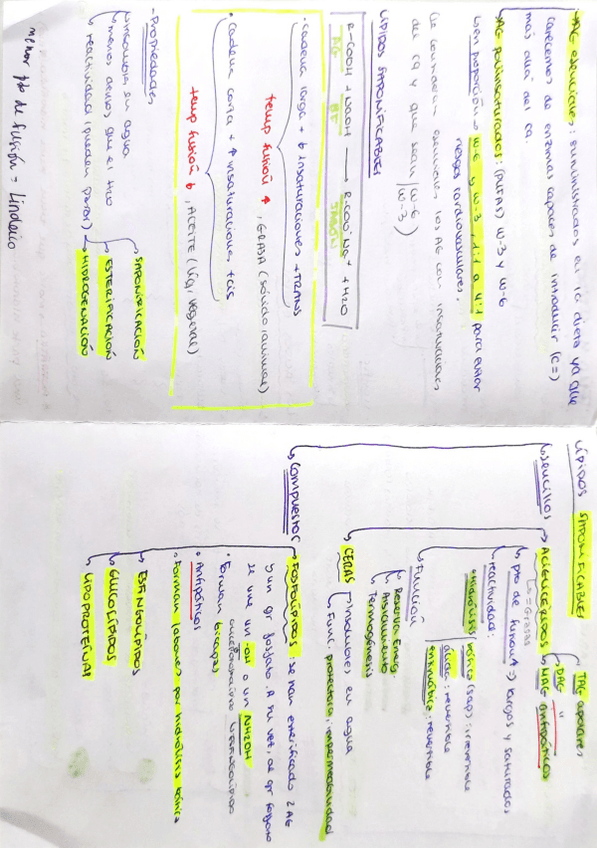 →AG esenciales: suministrados en la dieta ya que
carecemos de enzimas capaces de introducir (C=)
más allá del C9.
→AG poliinsaturados: (PUFAS) w-3 y w-6
bien proporción w-6 y w-3, 1:1 a 4:1 para evitar
riesgos cardiovasculares.
Se consideran esenciales los AG con insaturaciones
del C9 y que sean (w-6
w-3)
LÍPIDOS SAPONIFICABLES
R-COOH + NaOH → R-COO⁻Na⁺ + H2O
AG BF JABÓN
• cadena larga + ↓ insaturaciones + TRANS
temp fusión ↑, GRASA (sólido, animal)
• cadena corta + ↑ insaturaciones + cis
temp fusión ↓, ACEITE (líq, vegetal)
-Propiedades
↳ insoluble en agua
↳ menos densos que el H2O
↳ reactividad (pueden pasar)
SAPONIFICACIÓN
ESTERIFICACIÓN
HIDROGENACIÓN
menor pto de fusión = Linoleico
LÍPIDOS SAPONIFICABLES
↳ sencillos
↳ ACILGLICÉRIDOS
TAG apolares
DAG "
MAG anfipáticos
↳ = Grasas
↳ pto de fusión ↑ ⇒ largos y saturados
↳ reactividad:
•Hidrólisis
básica (sap): irreversible
ácida: reversible
enzimática: reversible
↳ Función
↳ Reserva Energ.
↳ Aislamiento
↳ Termogénesis
↳ CERAS
insolubles en agua
↳ Func. protectora, impermeabilidad
↳ COMPUESTOS
↳ FOSFOLÍPIDOS
se han esterificado 2 AG
y un gr fosfato. A su vez, al gr fosfato
se une un -OH o un NH2OH
• Anfipáticos
• Forman bicapas
• Forman jabones por hidrólisis básica
↳ ESFINGOLÍPIDOS
↳ GLUCOLÍPIDOS
↳ LIPOPROTEÍNAS